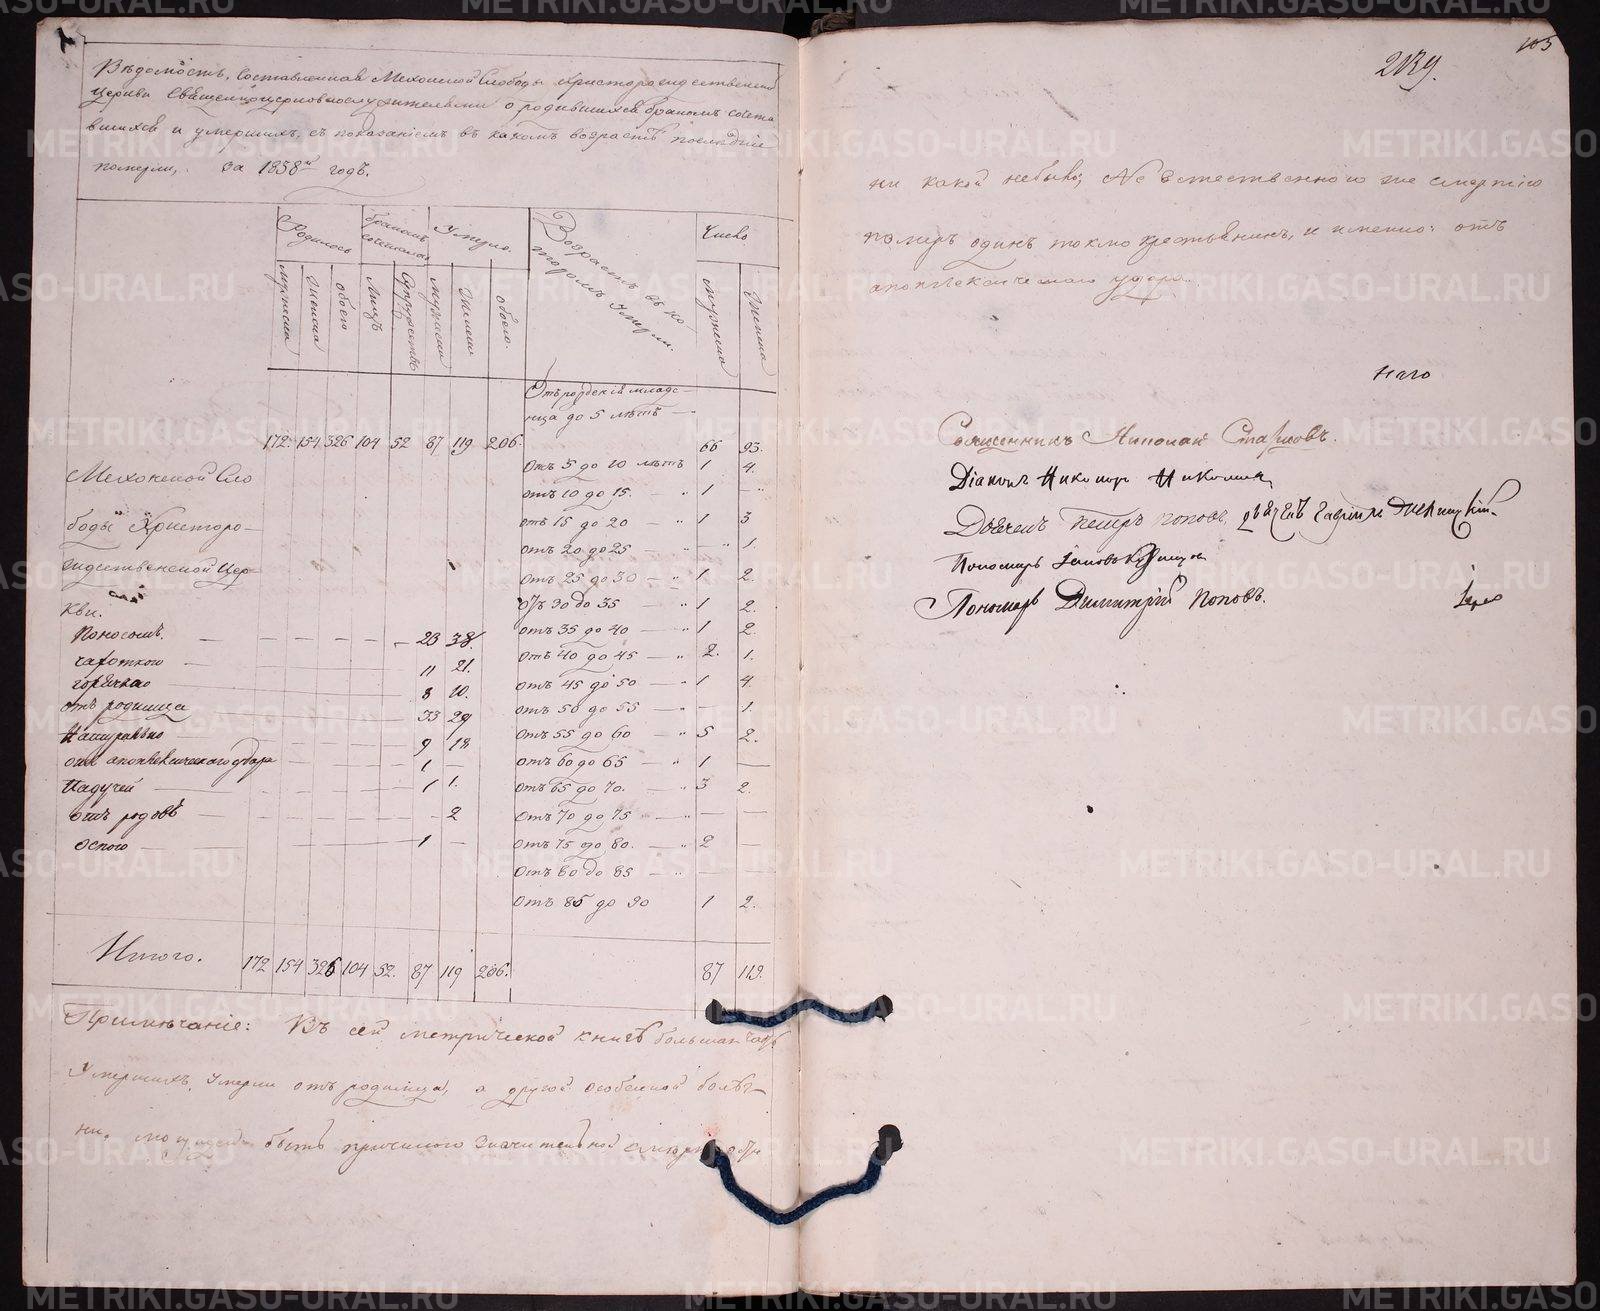 Вѣдомость, Составленная Мехонской Слободы Христорождественской
Церкви Священноцерковнослужителями о родившихся бракомъ сочета
вшихся и умершихъ, съ показаніемъ въ какомъ возрастѣ послѣдніе
померли, за 1858й годъ.
Родилось
бракомъ сочеталось
Умерло.
Возрастъ въ ко-
торомъ Умерли.
Число
мужеска
женска
обоего
Лицъ
Супружествъ
мужеска
женска
обоего.
мужеска
женска
Отъ рожденія младе-
нца до 5 лѣтъ —
172. 154 326 104 52 87 119 206. 66 93.
Отъ 5 до 10 лѣтъ 1 4.
Мехонской Сло
отъ 10 до 15. — „ 1 — „
боды Христоро-
отъ 15 до 20 — „ 1 3
отъ 20 до 25 — „ — „ 1.
ждественской Цер
отъ 25 до 30 — „ 1 2.
кви.
отъ 30 до 35 — „ 1 2.
Поносомъ. — 23 38.
отъ 35 до 40 — „ 1 2.
чахоткою — 11 21.
отъ 40 до 45 — „ 2. 1.
горячкою — 8 10.
отъ 45 до 50 — „ 1 4.
отъ родимца 33 29
отъ 50 до 55 — „ — 1.
Натурально 9 18
отъ 55 до 60 — „ 5 2.
отъ апоплексическаго удара 1 —
отъ 60 до 65 — „ 1 —
Падучей — 1 1.
отъ 65 до 70. — „ 3 2.
отъ родовъ — — 2
отъ 70 до 75 — „ — —
оспою — 1 —
отъ 75 до 80. — „ 2 —
отъ 80 до 85 — „ — —
отъ 85 до 90 1 2.
Итого. 172 154 326 104 52. 87 119 206. 87 119.
Примѣчаніе: Въ сей метрической книгѣ большая часть
Умершихъ, Умерли отъ родимца, а другой особенной болѣз-
ни, быть причиною значительной смертнос
105
239.
ни какой небыло; Неестественною же смертію
померъ одинъ токмо крестьянинъ, и именно: отъ
апоплексическаго удара.
наго
Священникъ Николай Стахіевъ.
Діаконъ Никаноръ
Дьячекъ Петръ Поповъ, дьячекъ Гавріилъ
Пономарь
Пономарь Димитрій Поповъ.
Іере
METRIKI.GASO-URAL.RU